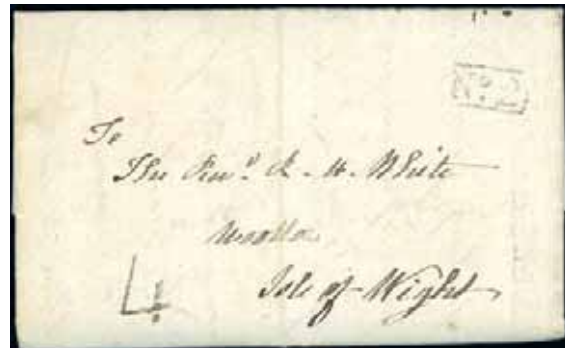 No. 2
To
The Revd. R. H. White
Isle of Wight
4